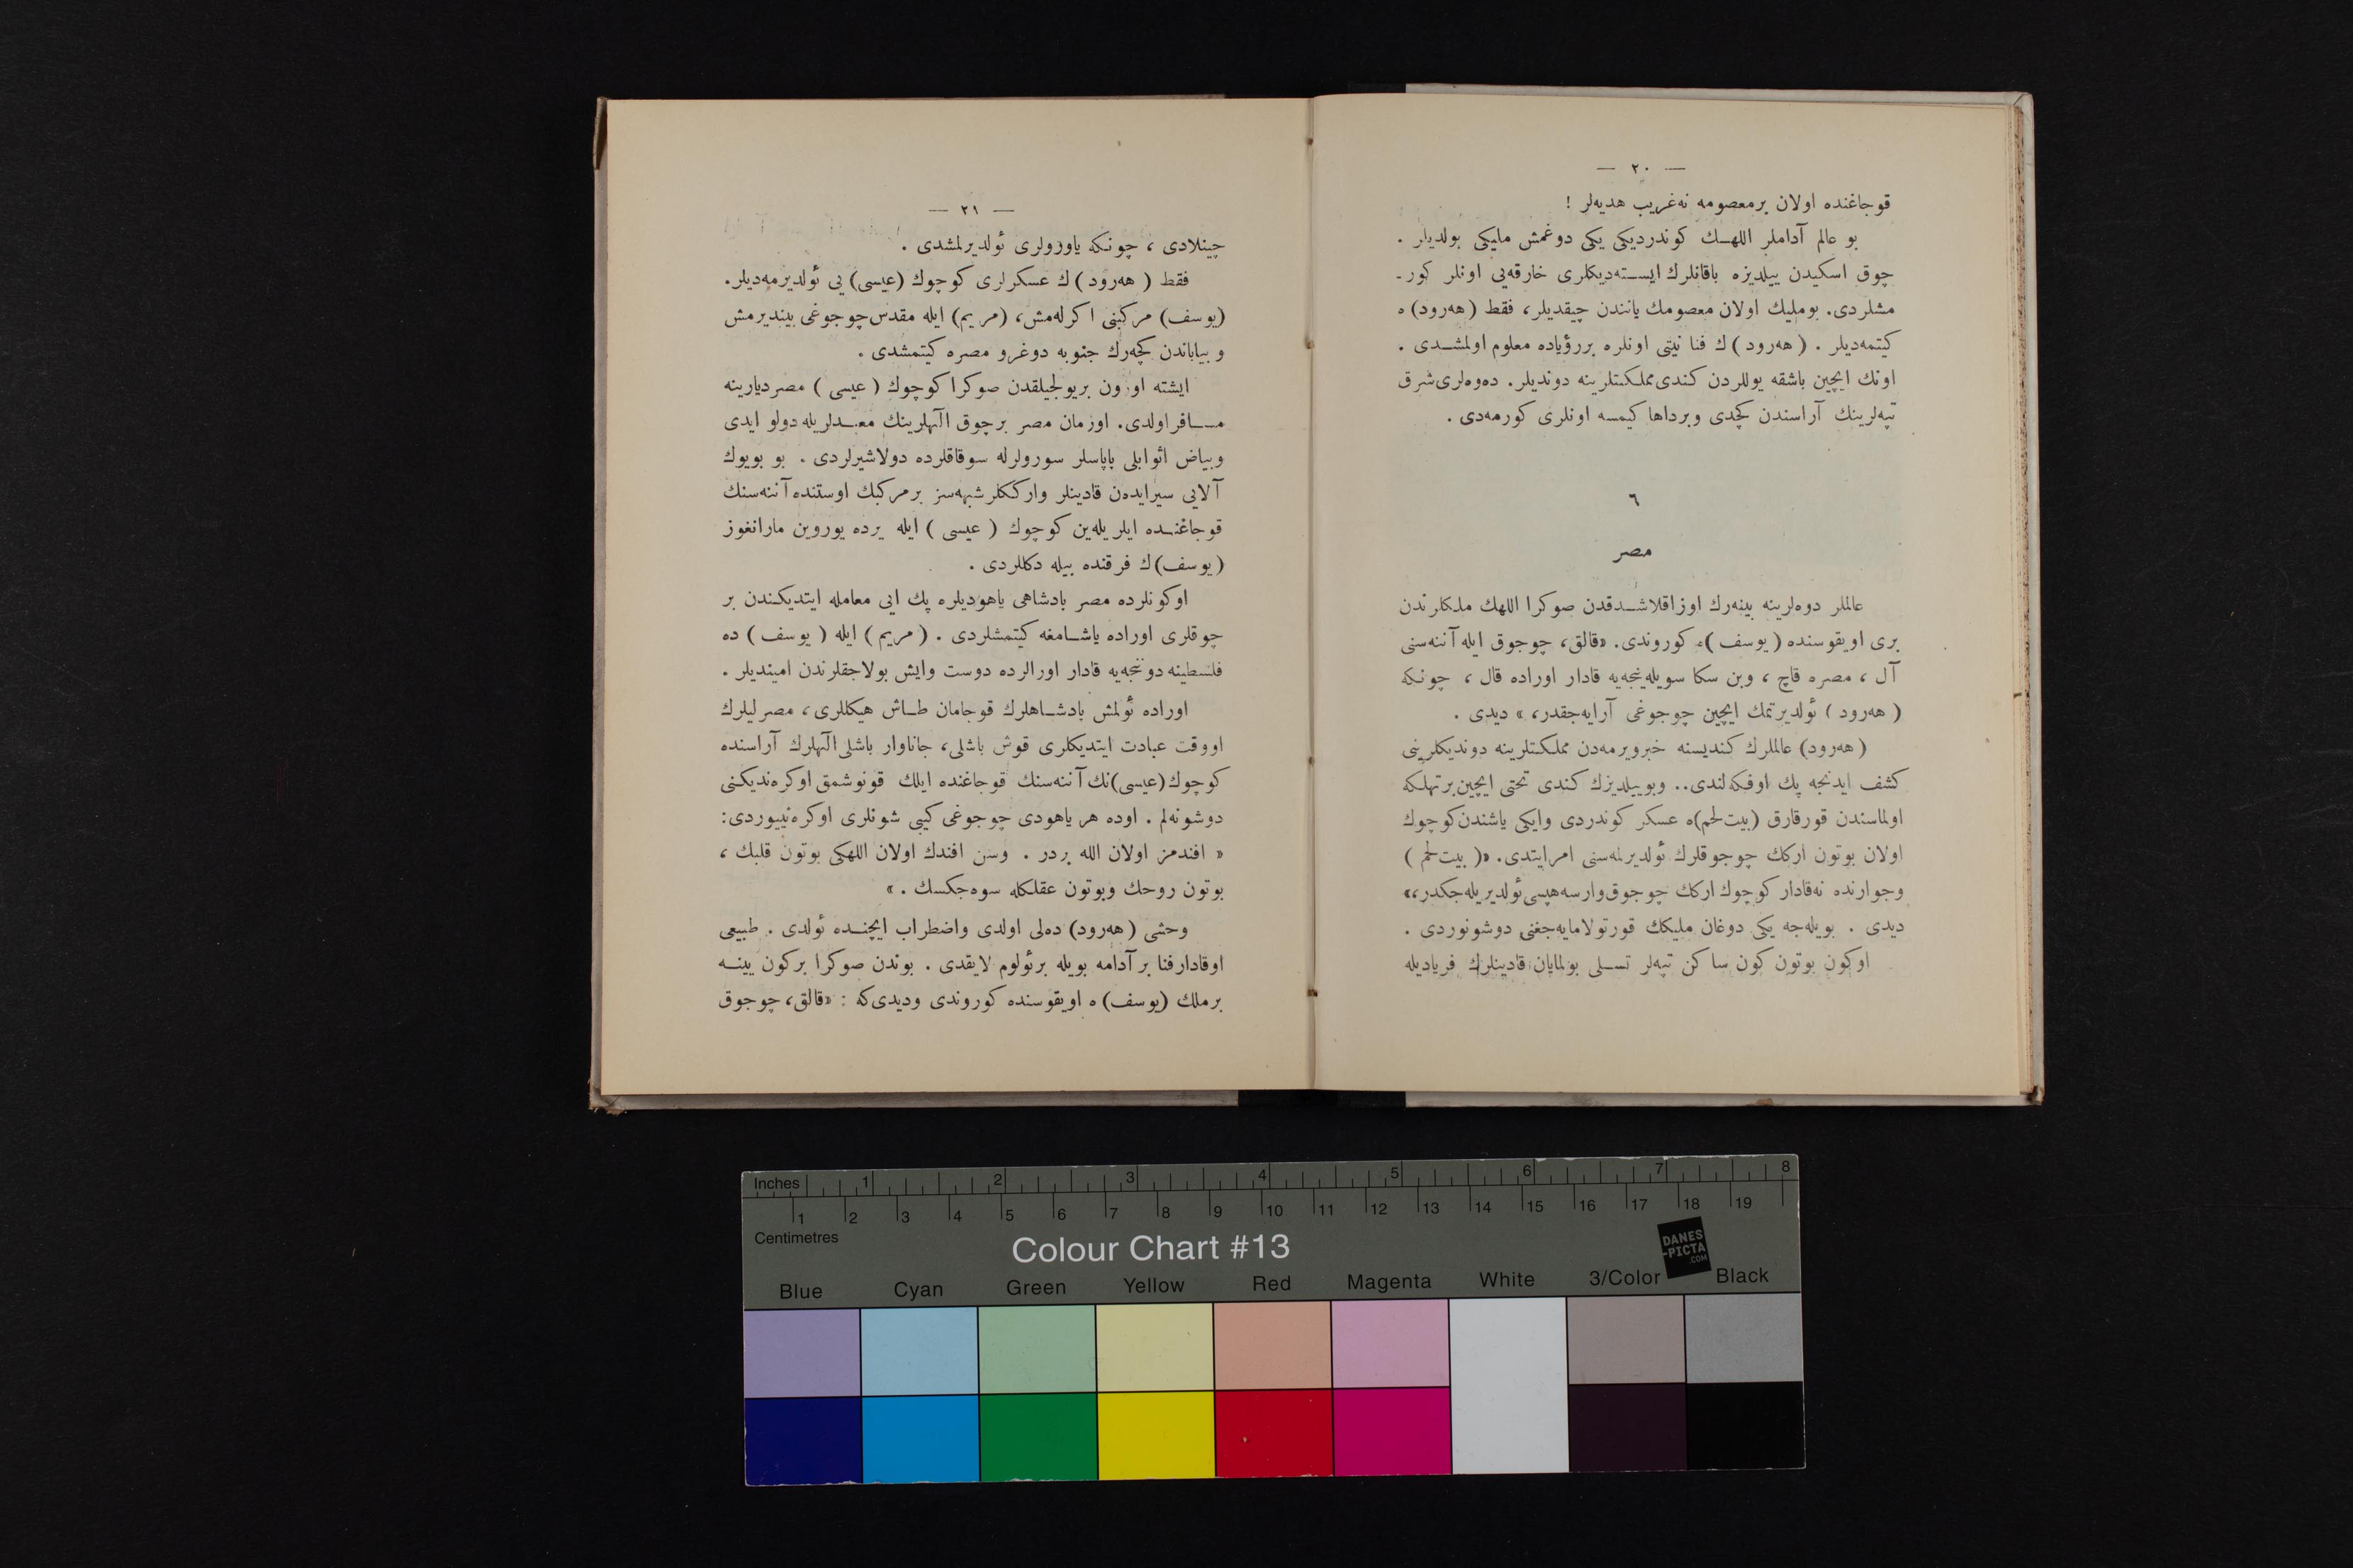 — ٢٠ —
قوجاغنده اولان برمعصومه نه‌غریب هدیه‌لر !
بو عالم آداملر اللهـك كوندردیكی یكی دوغمش ملیكی بولدیلر .
چوق اسكیدن ییلدیزه باقانلرك ایسته‌دیكلری خارقه‌یی اونلر كورـ
مشلردی. بوملیك اولان معصومك یانندن چیقدیلر، فقط (هه‌رود) ه
كیتمه‌دیلر . (هه‌رود) ك فنا نیتی اونلره بررؤیاده معلوم اولمشدی .
اونك ایچین باشقه یوللردن كندی مملكتلرینه دوندیلر. ده‌وه‌لری شرق
تپه‌لرینك آراسندن كچدی وبرداها كیمسه اونلری كورمه‌دی .
٦
مصر
عالملر دوه‌لرینه بینه‌رك اوزاقلاشدقدن صوكرا اللهك ملكلرندن
بری اویقوسنده (یوسف)ه كوروندی. «قالق، چوجوق ایله آننه‌سنی
آل ، مصره قاچ ، وبن سكا سویله‌ینجه‌یه قادار اوراده قال ، چونكه
(هه‌رود) ئولدیرتمك ایچین چوجوغی آرایه‌جقدر، » دیدی .
(هه‌رود) عالملرك كندیسنه خبرویرمه‌دن مملكتلرینه دوندیكلرینی
كشف ایدنجه پك اوفكه‌لندی.. وبوییلدیزك كندی تختی ایچین برتهلكه
اولماسندن قورقارق (بیت‌لحم)ه عسكر كوندردی وایكی یاشندن كوچوك
اولان بوتون اركك چوجوقلرك ئولدیرلمه‌سنی امرایتدی. «( بیت‌لحم )
وجوارنده نه‌قادار كوچوك اركك چوجوق‌وارسه هپسی ئولدیریله‌جكدر،»
دیدی . بویله‌جه یكی دوغان ملیكك قورتولامایه‌جغنی دوشونوردی .
اوكون بوتون كون ساكن تپه‌لر تسلی بولمایان قادینلرك فریادیله
— ٢١ —
چینلادی ، چونكه یاوزولری ئولدیرلمشدی .
فقط ( هه‌رود ) ك عسكرلری كوچوك (عیسی) یی ئولدیرمه‌دیلر.
(یوسف) مركبنی اكرله‌مش، (مریم) ایله مقدس چوجوغی بیندیرمش
و بیاباندن كچه‌رك جنوبه دوغرو مصره كیتمشدی .
ایشته اوزون بریولجیلقدن صوكرا كوچوك ( عیسی ) مصردیارینه
مسافر اولدی. اوزمان مصر برچوق آلهلرینك معبدلریله دولو ایدی
وبیاض اثوابلی پاپاسلر سورولرله سوقاقلرده دولاشیرلردی . بو بویوك
آلایی سیرایده‌ن قادینلر وارككلر شبهه‌سز برمركبك اوستنده آننه‌سنك
قوجاغنده ایلریله‌ین كوچوك ( عیسی ) ایله یرده یوروین مارانغوز
(یوسف)ك فرقنده بیله دكللردی .
اوكونلرده مصر بادشاهی یاهودیلره پك ایی معامله ایتدیكندن بر
چوقلری اوراده یاشامغه كیتمشلردی . (مریم) ایله (یوسف) ده
فلسطینه دوننجه‌یه قادار اورالرده دوست وایش بولاجقلرندن امیندیلر .
اوراده ئولمش بادشاهلرك قوجامان طاش هیكللری، مصرلیلرك
اووقت عبادت ایتدیكلری قوش باشلی، جاناوار باشلی آلهلرك آراسنده
كوچوك (عیسی)نك آننه‌سنك قوجاغنده ایلك قونوشمق اوكره‌ندیكنی
دوشونه‌لم . اوده هر یاهودی چوجوغی كیبی شونلری اوكره‌نییوردی:
« افندمز اولان الله بردر . وسن افندك اولان اللهكی بوتون قلبك ،
بوتون روحك وبوتون عقلكله سوه‌جكسك . »
وحشی (هه‌رود) ده‌لی اولدی واضطراب ایچنده ئولدی . طبیعی
اوقادار فنا بر آدامه بویله برئولوم لایقدی . بوندن صوكرا بركون یینه
برملك (یوسف) ه اویقوسنده كوروندی ودیدی‌كه : «قالق، چوجوق
Inches 1 2 3 4 5 6 7 8
1 2 3 4 5 6 7 8 9 10 11 12 13 14 15 16 17 18 19
Centimetres
Colour Chart #13
DANES
-PICTA
.COM
Blue Cyan Green Yellow Red Magenta White 3/Color Black